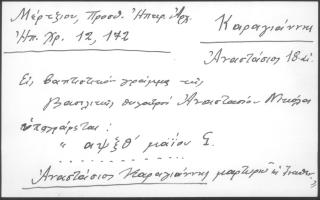 Μέρτζιου, Προσθ. Ἠπειρ. Ἀρχ.
Ἠπ. Χρ. 12, 172
Καραγιάννης
Ἀναστάσιος 18 αἰ.
Εἰς βαπτιστικὸν γράμμα τῆς
Βασιλικῆς θυγατρὸς Ἀναστασίου
ὑπογράφεται:
" αψξθ' μαΐου
Ἀναστάσιος Καραγιάννης μαρτυρῶ